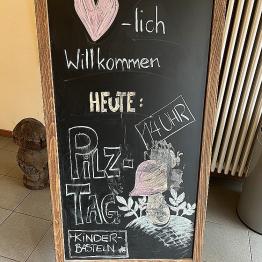 -lich
Willkommen
HEUTE:
14 UHR
PILZ-
TAG
KINDER-
BASTELN